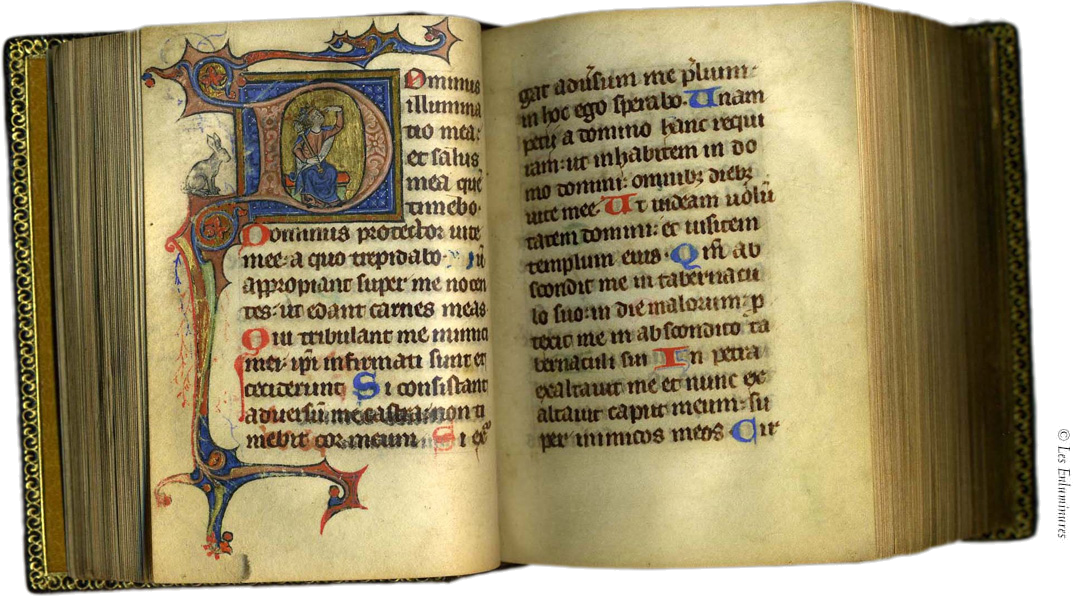 Dominus
illumina
tio mea:
et salus
mea que
timebo.
Dominus protector uite
mee: a quo trepidabo.
appropiant super me nocen
tes: ut edant carnes meas.
Qui tribulant me inimici
mei: ipi infirmati sunt et
ceciderunt Si consistant
aduersu me castra: non ti
mebit cor meum Si ex
gat adusum me plium
in hoc ego sperabo. Unam
petii a domino hanc requi
ram: ut inhabitem in do
mo domini: omnibz diebz
uite mee. Ut uideam uolu
tatem domini: et uisitem
templum eius. Qm ab
scondit me in tabernacu
lo suo: in die malorum: p
texit me in abscondito ta
bernaculi sui In petra
exaltauit me et nunc ex
altauit caput meum: su
per inimicos meos Cir
© Les Enluminures